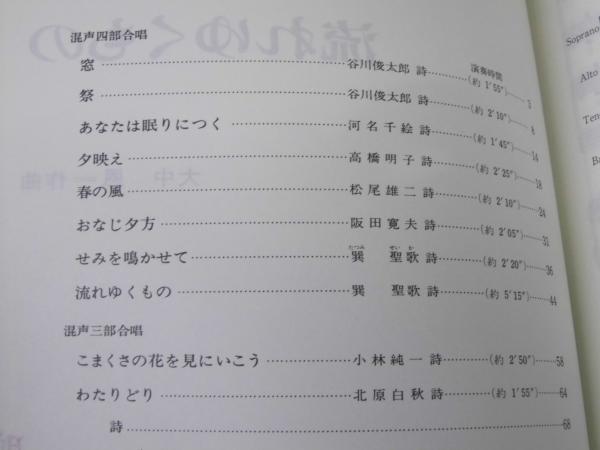 混声四部合唱
演奏時間
窓 谷川俊太郎 詩 (約 1′55″) 5
祭 谷川俊太郎 詩 (約 2′10″) 8
あなたは眠りにつく 河名千絵 詩 (約 1′45″) 14
夕映え 高橋明子 詩 (約 2′25″) 18
春の風 松尾雄二 詩 (約 2′10″) 24
おなじ夕方 阪田寛夫 詩 (約 2′05″) 31
たつみ せい か
せみを鳴かせて 巽 聖歌 詩 (約 2′20″) 36
流れゆくもの 巽 聖歌 詩 (約 5′15″) 44
混声三部合唱
こまくさの花を見にいこう 小林純一 詩 (約 2′50″) 58
わたりどり 北原白秋 詩 (約 1′55″) 64
詩 68
Soprano
Alto
流れゆくもの